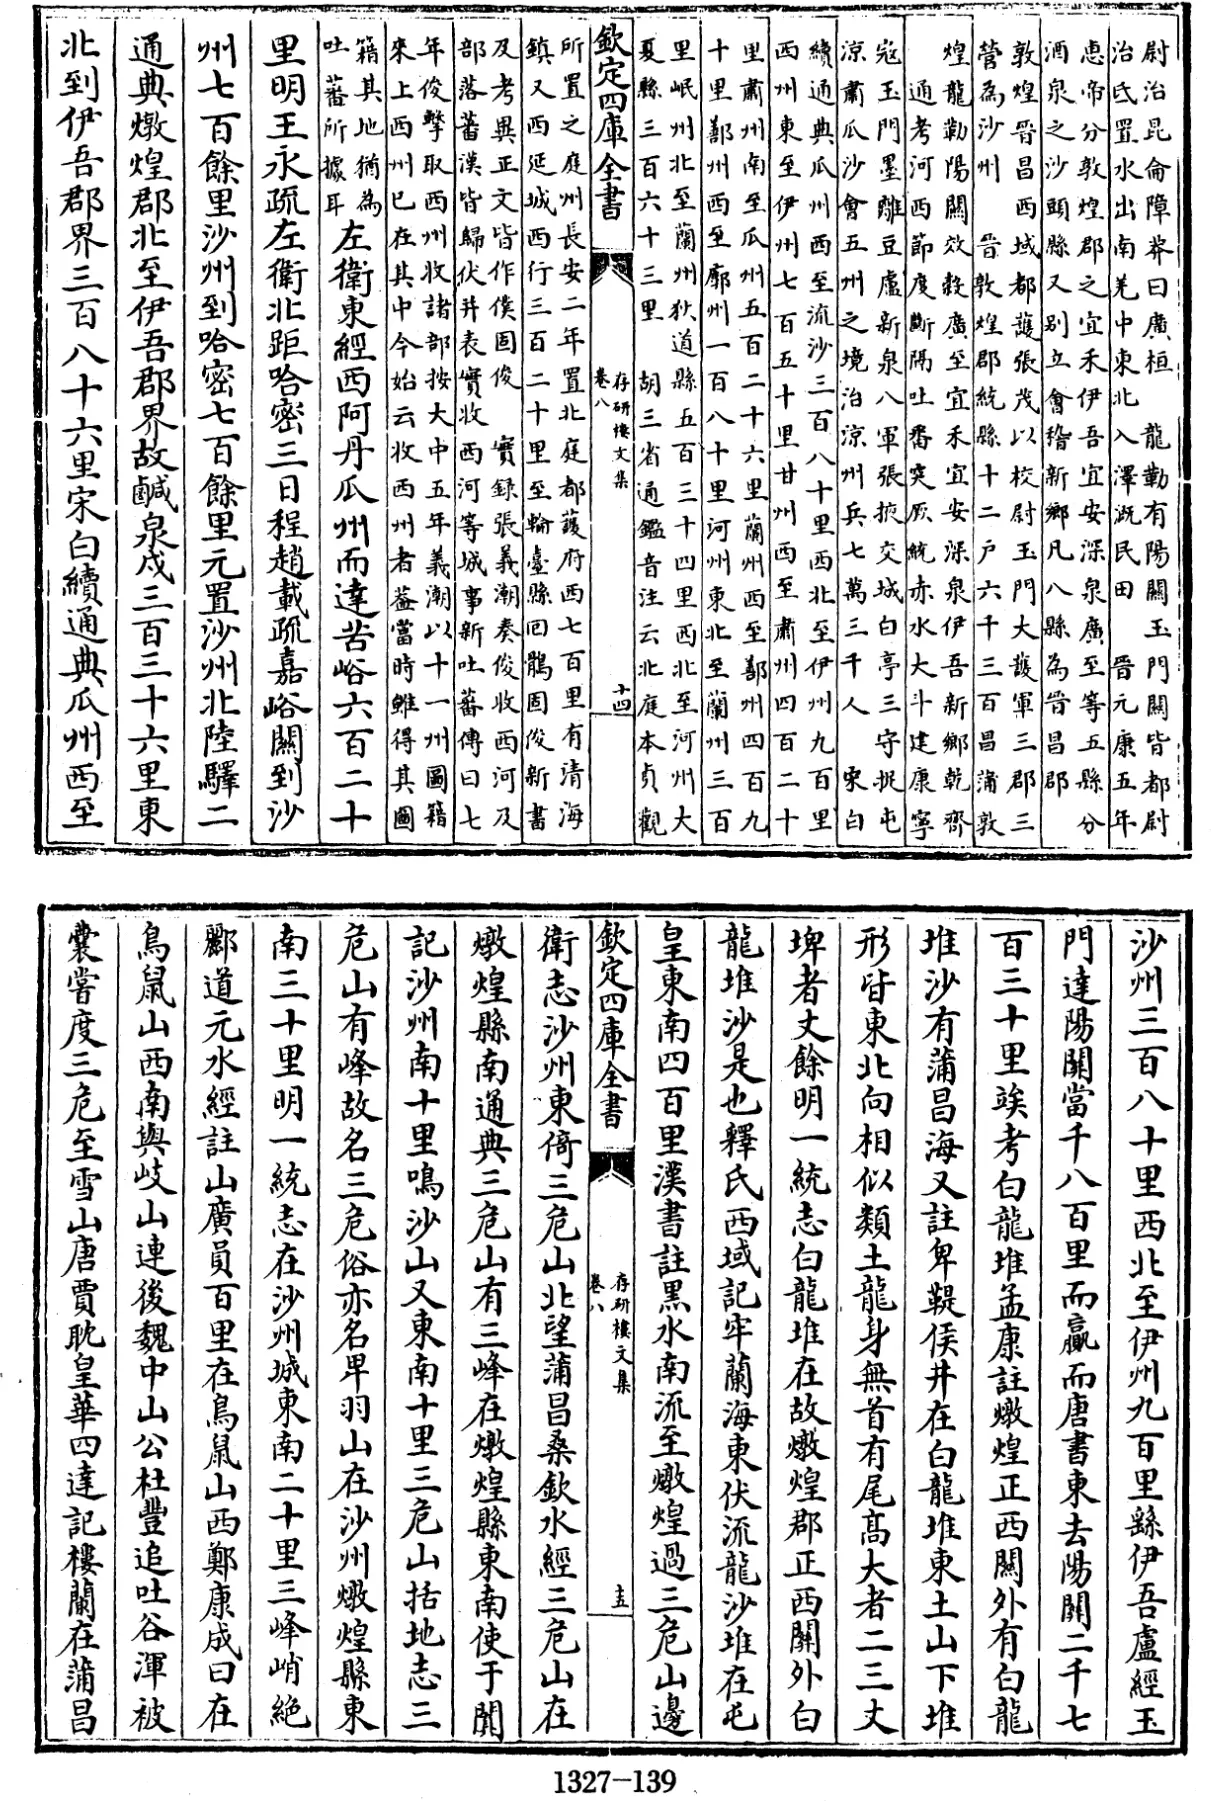 尉治昆侖障莽曰廣桓　龍勒有陽關玉門關皆都尉
治氐置水出南羌中東北入澤溉民田　晉元康五年
惠帝分敦煌郡之宜禾伊吾宜安深泉廣至等五縣分
酒泉之沙頭縣又别立會稽新鄉凡八縣為晉昌郡
敦煌晉昌西域都護張茂以校尉玉門大護軍三郡三
營為沙州　晉敦煌郡統縣十二户六千三百昌蒲敦
煌龍勒陽關效穀廣至宜禾宜安深泉伊吾新鄉乾齊
通考河西節度斷隔吐番突厥統赤水大斗建康寧
宼玉門墨離豆盧新泉八軍張掖交城白亭三守捉屯
凉肅瓜沙會五州之境治凉州兵七萬三千人　宋白
續通典瓜州西至流沙三百八十里西北至伊州九百里
西州東至伊州七百五十里甘州西至肅州四百二十
里肅州南至瓜州五百二十六里蘭州西至鄯州四百九
十里鄯州西至廓州一百八十里河州東北至蘭州三百
里岷州北至蘭州狄道縣五百三十四里西北至河州大
夏縣三百六十三里　胡三省通鑑音注云北庭本貞觀
欽定四庫全書
存研樓文集
卷八
十四
所置之庭州長安二年置北庭都護府西七百里有清海
鎮又西延城西行三百二十里至輪臺縣囘鶻固俊新書
及考異正文皆作僕固俊　實録張義潮奏俊收西河及
部落蕃漢皆歸伏并表實收西河等城事新吐蕃傳曰七
年俊擊取西州收諸部按大中五年義潮以十一州圖籍
來上西州已在其中今始云收西州者葢當時雖得其圖
籍其地猶為
吐蕃所據耳
左衛東經西阿丹瓜州而達苦峪六百二十
里明王永疏左衛北距哈密三日程趙載疏嘉峪關到沙
州七百餘里沙州到哈密七百餘里元置沙州北陸驛二
通典燉煌郡北至伊吾郡界故鹹泉戍三百三十六里東
北到伊吾郡界三百八十六里宋白續通典瓜州西至
沙州三百八十里西北至伊州九百里繇伊吾盧經玉
門達陽關當千八百里而贏而唐書東去陽關二千七
百三十里竢考白龍堆孟康註燉煌正西關外有白龍
堆沙有蒲昌海又註卑鞮侯井在白龍堆東土山下堆
形皆東北向相似類土龍身無首有尾髙大者二三丈
埤者丈餘明一統志白龍堆在故燉煌郡正西關外白
龍堆沙是也釋氏西域記牢蘭海東伏流龍沙堆在屯
皇東南四百里漢書註黒水南流至燉煌過三危山邊
欽定四庫全書
存研樓文集
卷八
十五
衛志沙州東倚三危山北望蒲昌桑欽水經三危山在
燉煌縣南通典三危山有三峰在燉煌縣東南使于闐
記沙州南十里鳴沙山又東南十里三危山括地志三
危山有峰故名三危俗亦名卑羽山在沙州燉煌縣東
南三十里明一統志在沙州城東南二十里三峰峭絶
酈道元水經註山廣員百里在鳥鼠山西鄭康成曰在
鳥鼠山西南與岐山連後魏中山公杜豐追吐谷渾被
囊嘗度三危至雪山唐賈耽皇華四達記樓蘭在蒲昌
1327-139